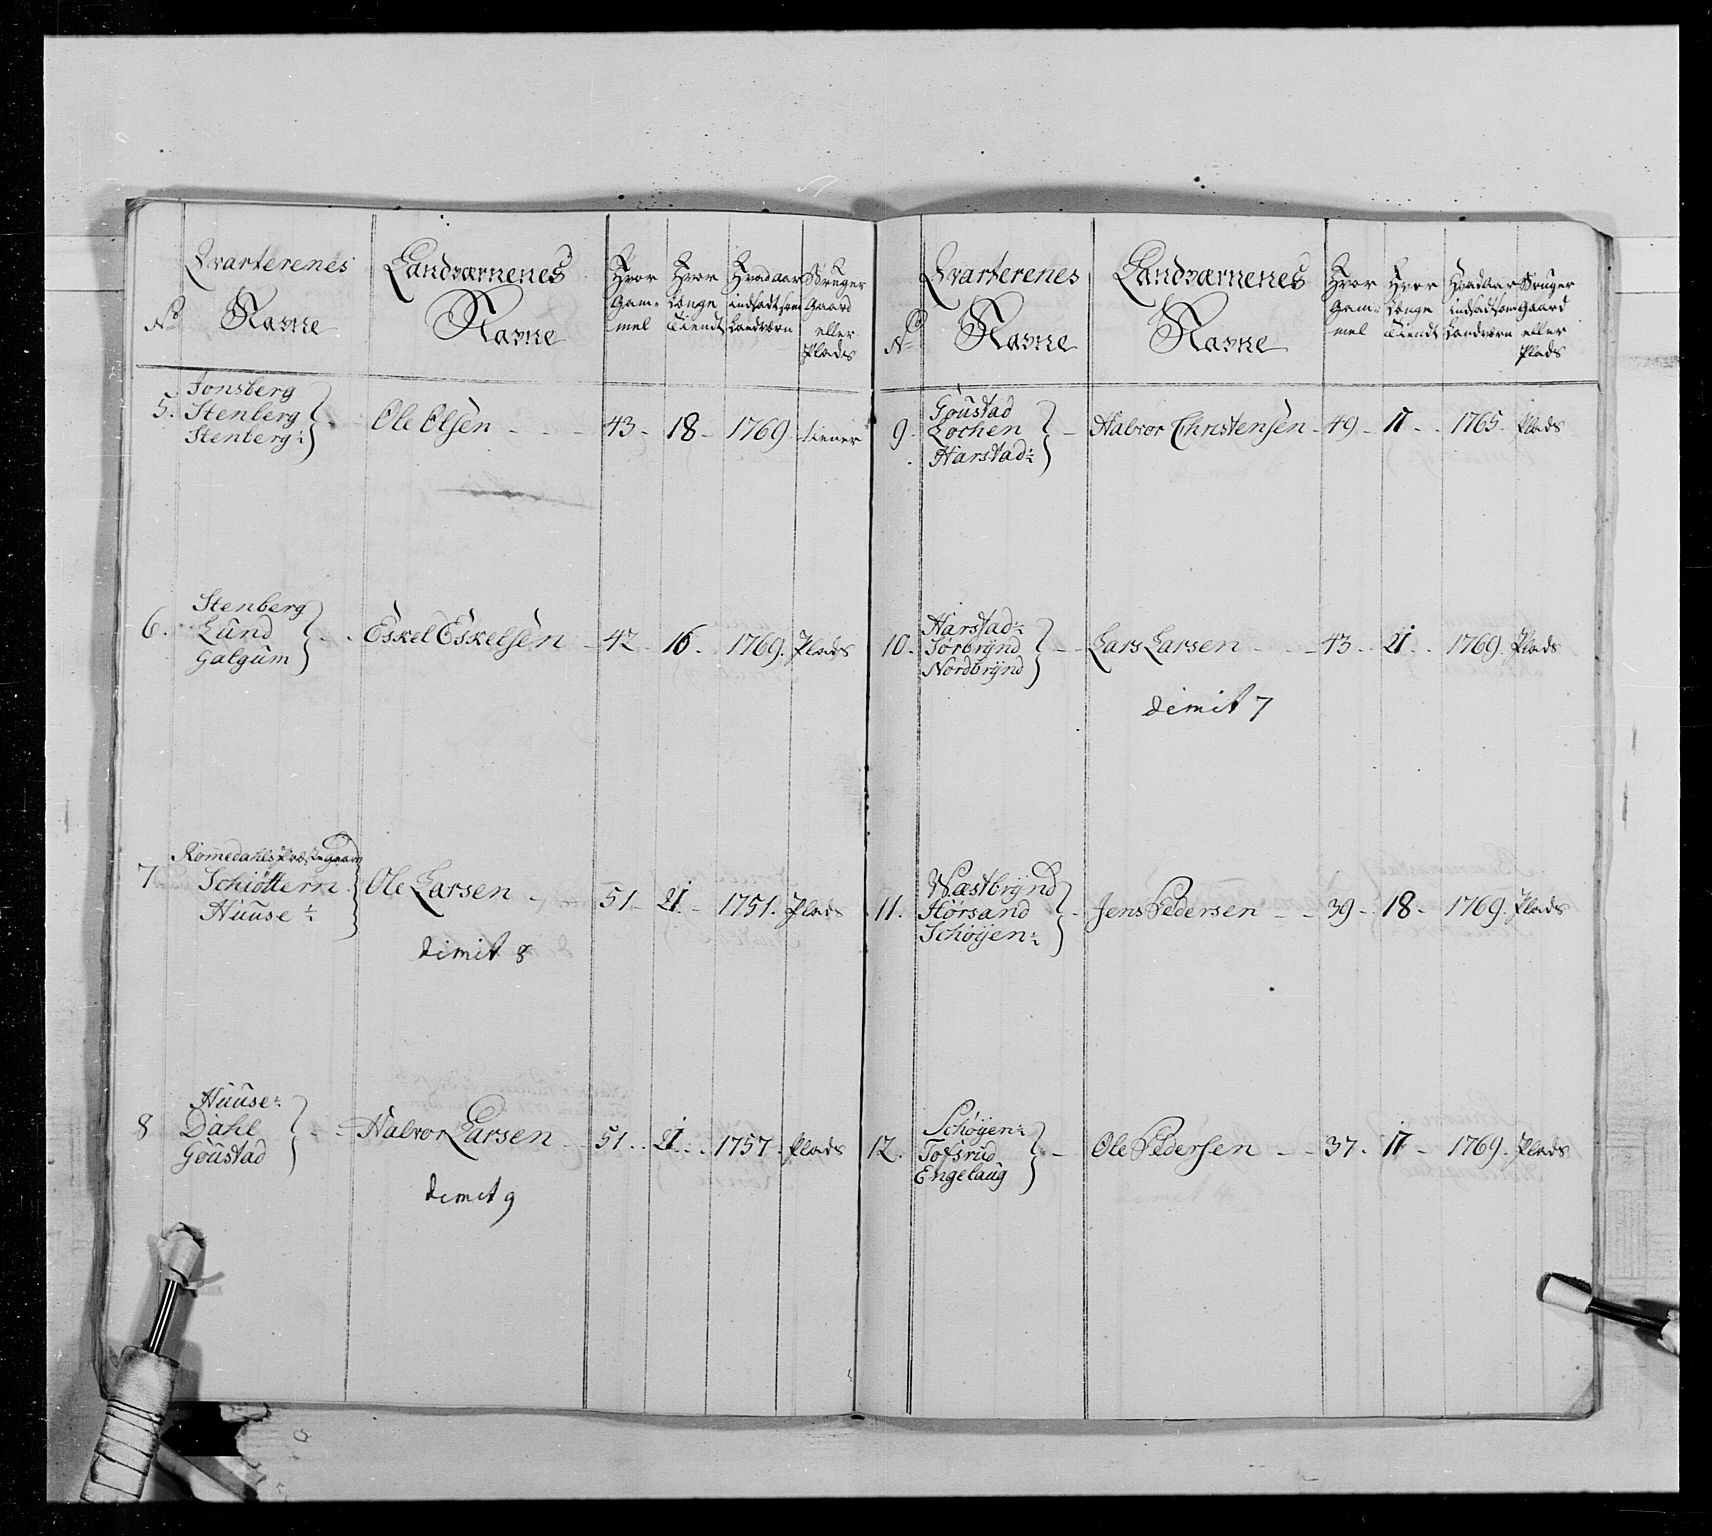 No
Qvarterenes
Navne
Landværnenes
Navne
Hvor
Gam=
mel
Hvor
Længe
tient
Hvad Aar
indsadt som
Landværn
Bruger
Gaard
eller
Plads
5. Jonsberg
Stenberg
Stenberg ½
Ole Olsen - 43 - 18 - 1769. tiener
6. Stenberg
Lund
Galgum
Eskel Eskelsen - 42 - 16 - 1769. Plads
7 Romedahls Præstegaard
Schiøttern
Huuse ½
Ole Larsen - 51 - 21 - 1751. Plads
dimit 8
8 Huuse ½
Dahl
Goustad
Halvor Larsen - 51 - 21 - 1757. Plads
dimit 9
No
Qvarterenes
Navne
Landværnenes
Navne
Hvor
Gam=
mel
Hvor
Længe
tient
Hvad Aar
indsadt som
Landværn
Bruger
Gaard
eller
Plads
9. Goustad
Løchen
Harstad ½
Halvor Christensen - 49 - 17 - 1765. Plads
10. Harstad ½
Sørbrÿnd
Nordbrÿnd
Lars Larsen - 43 - 21 - 1769. Plads
dimit 7
11. Wæstbrÿnd
Hørsand
Schøÿen ½
Jens Pedersen - 39 - 18 - 1769. Plads
12. Schøÿen ½
Tofsrud
Engelaug
Ole Pedersen - 37 - 17 - 1769. Plads